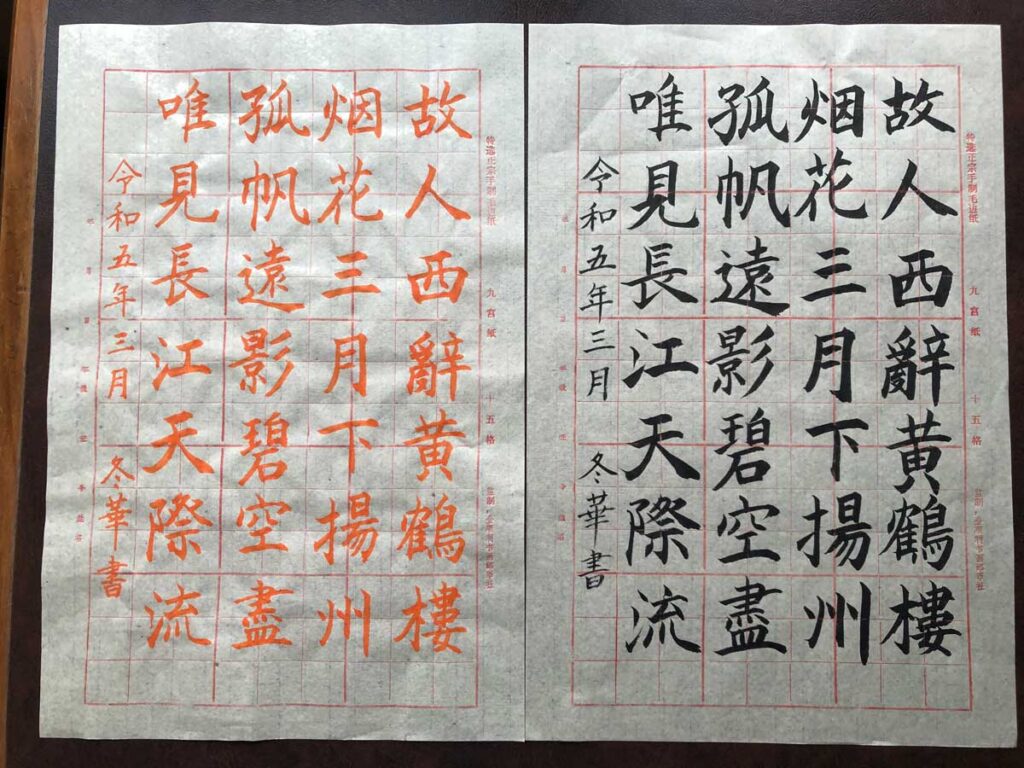 故人西辭黄鶴樓
烟花三月下揚州
孤帆遠影碧空盡
唯見長江天際流
令和五年三月 冬華書
九宮紙
十五格
特選正宗手制毛边紙
故人西辭黄鶴樓
烟花三月下揚州
孤帆遠影碧空盡
唯見長江天際流
令和五年三月 冬華書
九宮紙
十五格